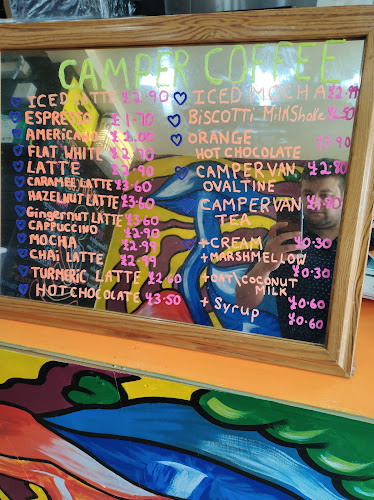 CAMPER COFFEE
ICED LATTE £2.90
ESPRESSO £1.70
AMERICANO £2.00
FLAT WHITE £2.70
LATTE £2.90
CARAMEL LATTE £3.60
HAZELNUT LATTE £3.60
GingerNUT LATTE £3.60
CAPPUCCINO £2.90
MOCHA £2.99
CHAI LATTE £2.99
TURMERIC LATTE £2.60
HOT CHOCOLATE £3.50
ICED MOCHA £2.99
BISCOTTI MILKShake
ORANGE
HOT CHOCOLATE
CAMPERVAN £2.80
OVALTINE
CAMPERVAN £1.80
TEA
+ CREAM £0.30
+ MARSHMELLOW
£0.30
+ OAT\COCONUT
MILK £0.60
+ Syrup £0.60